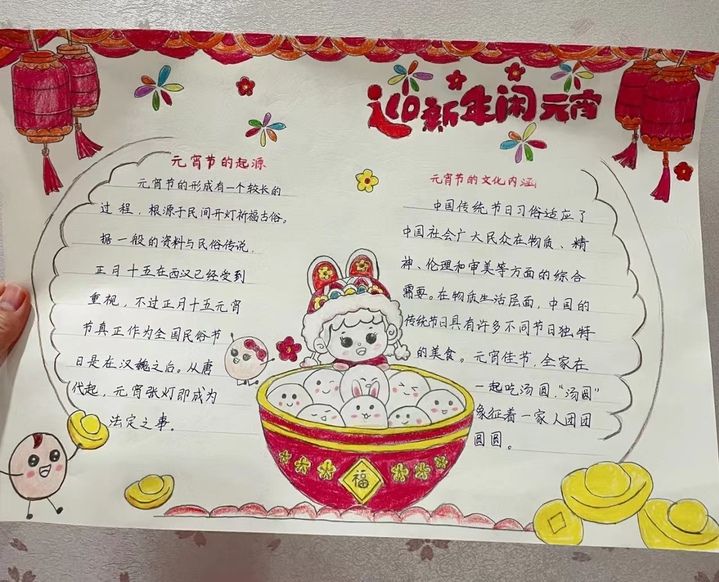 迎新年闹元宵
元宵节的起源
元宵节的形成有一个较长的
过程，根源于民间开灯祈福古俗。
据一般的资料与民俗传说，
正月十五在西汉已经受到
重视，不过正月十五元宵
节真正作为全国民俗节
日是在汉魏之后。从唐
代起，元宵张灯即成为
法定之事。
元宵节的文化内涵
中国传统节日习俗适应了
中国社会广大民众在物质、精
神、伦理和审美等方面的综合
需要。在物质生活层面，中国的
传统节日具有许多不同节日独特
的美食。元宵佳节，全家在
一起吃汤圆，“汤圆”
象征着一家人团团
圆圆。
福